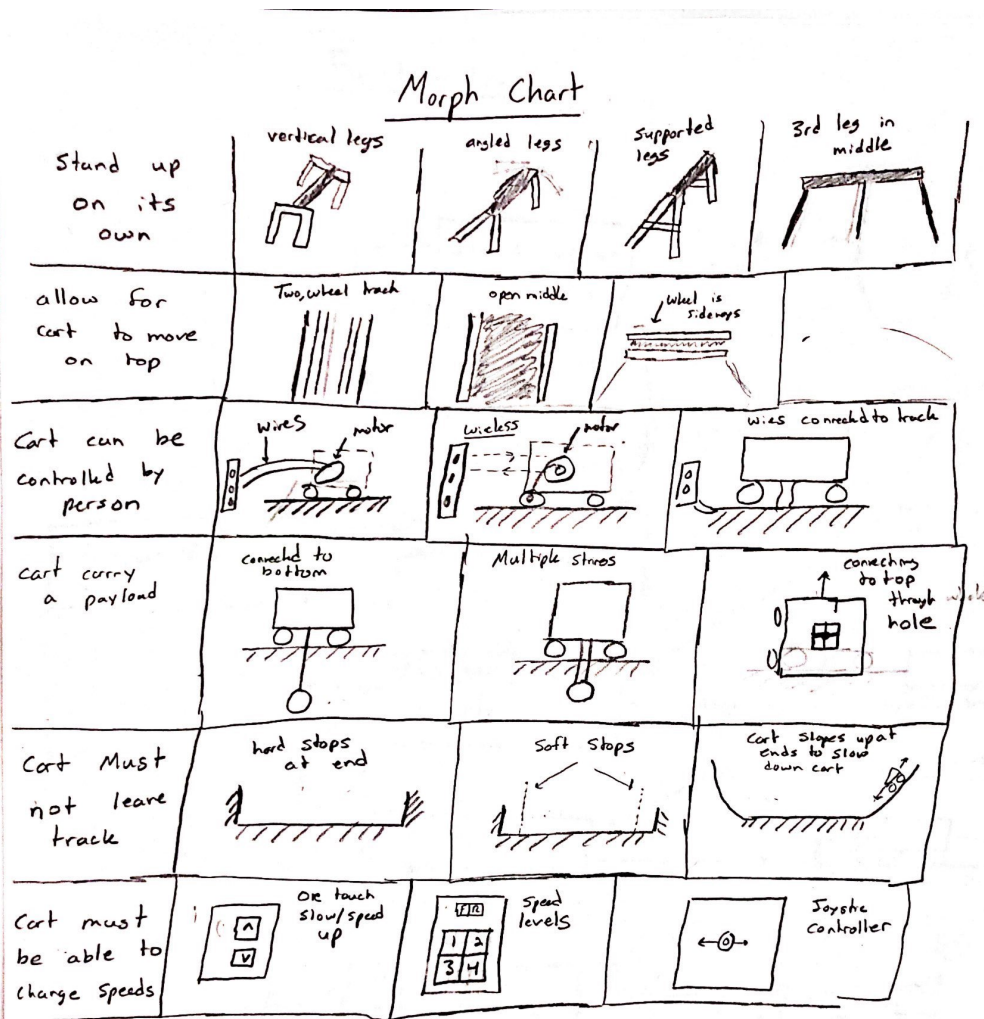 Morph Chart
Stand up
on its
own
vertical legs
angled legs
Supported
legs
3rd leg in
middle
allow for
cart to move
on top
Two, wheel track
open middle
wheel is
sideways
Cart can be
controlled by
person
wires
motor
wireless
motor
wires connected to track
cart carry
a payload
connected to
bottom
Multiple
connecting
to top
through
hole
Cart Must
not leave
track
hard stops
at end
Soft Stops
Cart slopes up at
ends to slow
down cart
Cart must
be able to
change speeds
touch
slow/speed
up
F R
1 2
3 4
Speed
levels
Joystic
controller